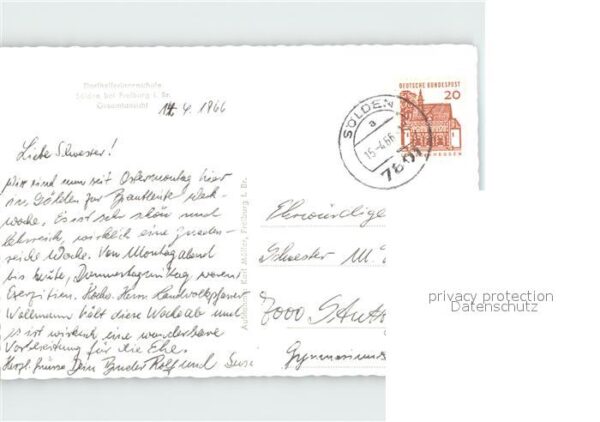 Dorfhelferinnenschule
Sölden bei Freiburg i. Br.
Gesamtansicht
14. 4. 1966
Liebe Schwester!
Wir sind nun seit Ostermontag hier
in Sölden zur Brautleute
woche. Es ist sehr schön und
lehrreich, wirklich eine Gnaden-
reiche Woche. Von Montagabend
bis heute, Donnerstagmittag, waren
Exerzitien. Hochw. Herr Landvolkpfarrer
hält diese Woche ab und
es ist wirklich eine wunderbare
Vorbereitung für die Ehe.
Herzl. Grüsse Dein Bruder Rolf und Susi
Karl Müller, Freiburg i. Br.
DEUTSCHE BUNDESPOST
20
SÖLDEN
a
15.-4.66
7801
Ehrwürdige
Schwester M.
7000 Stutt
Gymnasium
privacy protection
Datenschutz